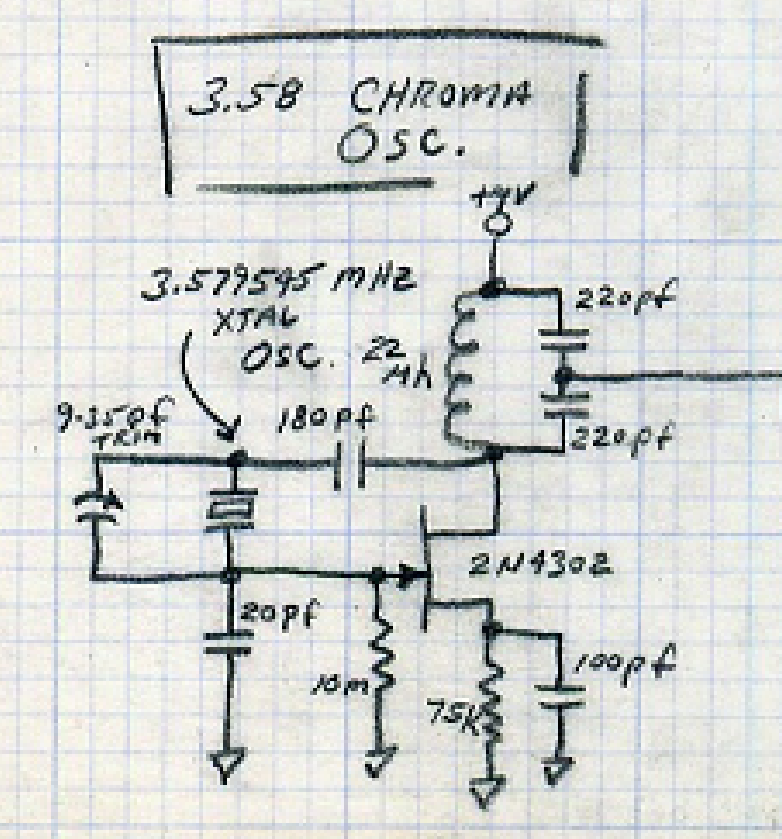 3.58 CHROMA
OSC.
+4V
3.579545 MHZ
XTAL
OSC.
22
Mh
220pf
220pf
9-350f
TRIM
180pf
2N4302
20pf
10m
75K
100pf